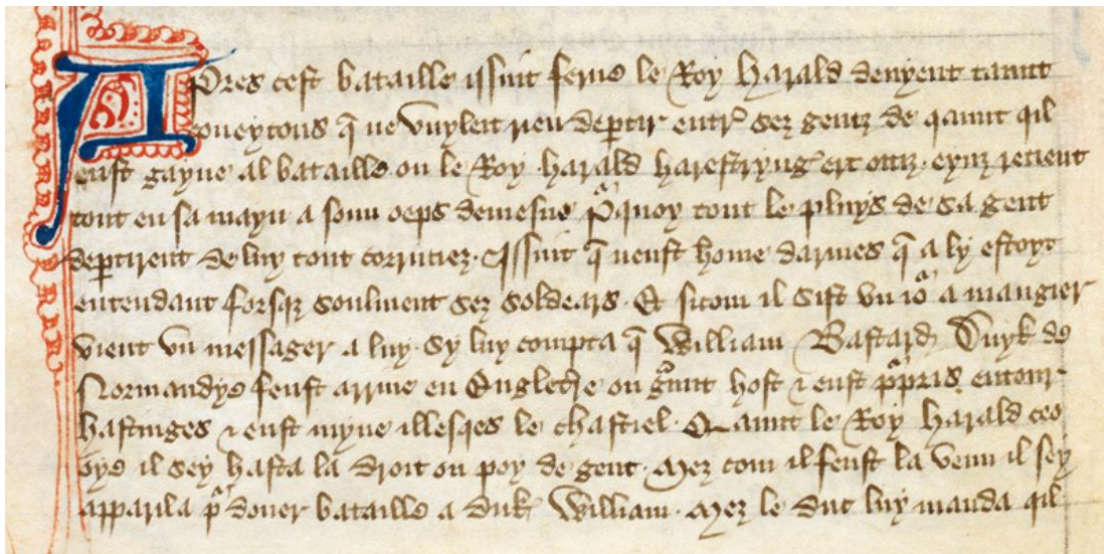 Apres cest bataille issint ferue le Roy Harald devyent taunt
coveytous q̃ ne vuyleit rien deꝑtir entr̾ sez gentz de qaunt qil
eust gayne al bataille ou le Roy harald harestryng̾ ert occiz eynz retient
tout en sa mayn a soun oeps demesne pͣquoy tout le pluys de sa gent
deꝑtirent de luy tout corruciez. Issint q̃ neust home darmes q̃ a ly estoyt
entendant forsqz soulment sez soldears. Et sicom il sist vn ioͬ a mangier
vient vn messager a luy. sy luy compta q̃ William Bastard Duyk de
Normandye feust arriue en Englet̾re ou gͣunt host ⁊ eust pͬpris entour
hastinges ⁊ eust myne illesqes le chastiel. Qaunt le Roy Harald ceo
oye il sey hasta la droit ou poy de gent. Mez com il feust la venu il sey
apparila pͬ doner bataille a duk William. Mez le duc luy manda qil